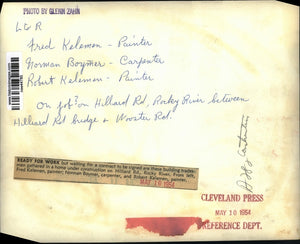 PHOTO BY GLENN ZAHN
L & R
Fred Keleman - Painter
Norman Boymer - Carpenter
Robert Keleman - Painter
On job on Hilliard Rd, Rocky River between
Hilliard Rd bridge & Wooster Rd.
READY FOR WORK but waiting for a contract to be signed are these building trades-
men gathered in a home under construction on Hilliard Rd., Rocky River. From left,
Fred Keleman, painter; Norman Boymer, carpenter, and Robert Keleman, painter.
MAY 19 1954
CLEVELAND PRESS
MAY 10 1954
REFERENCE DEPT.